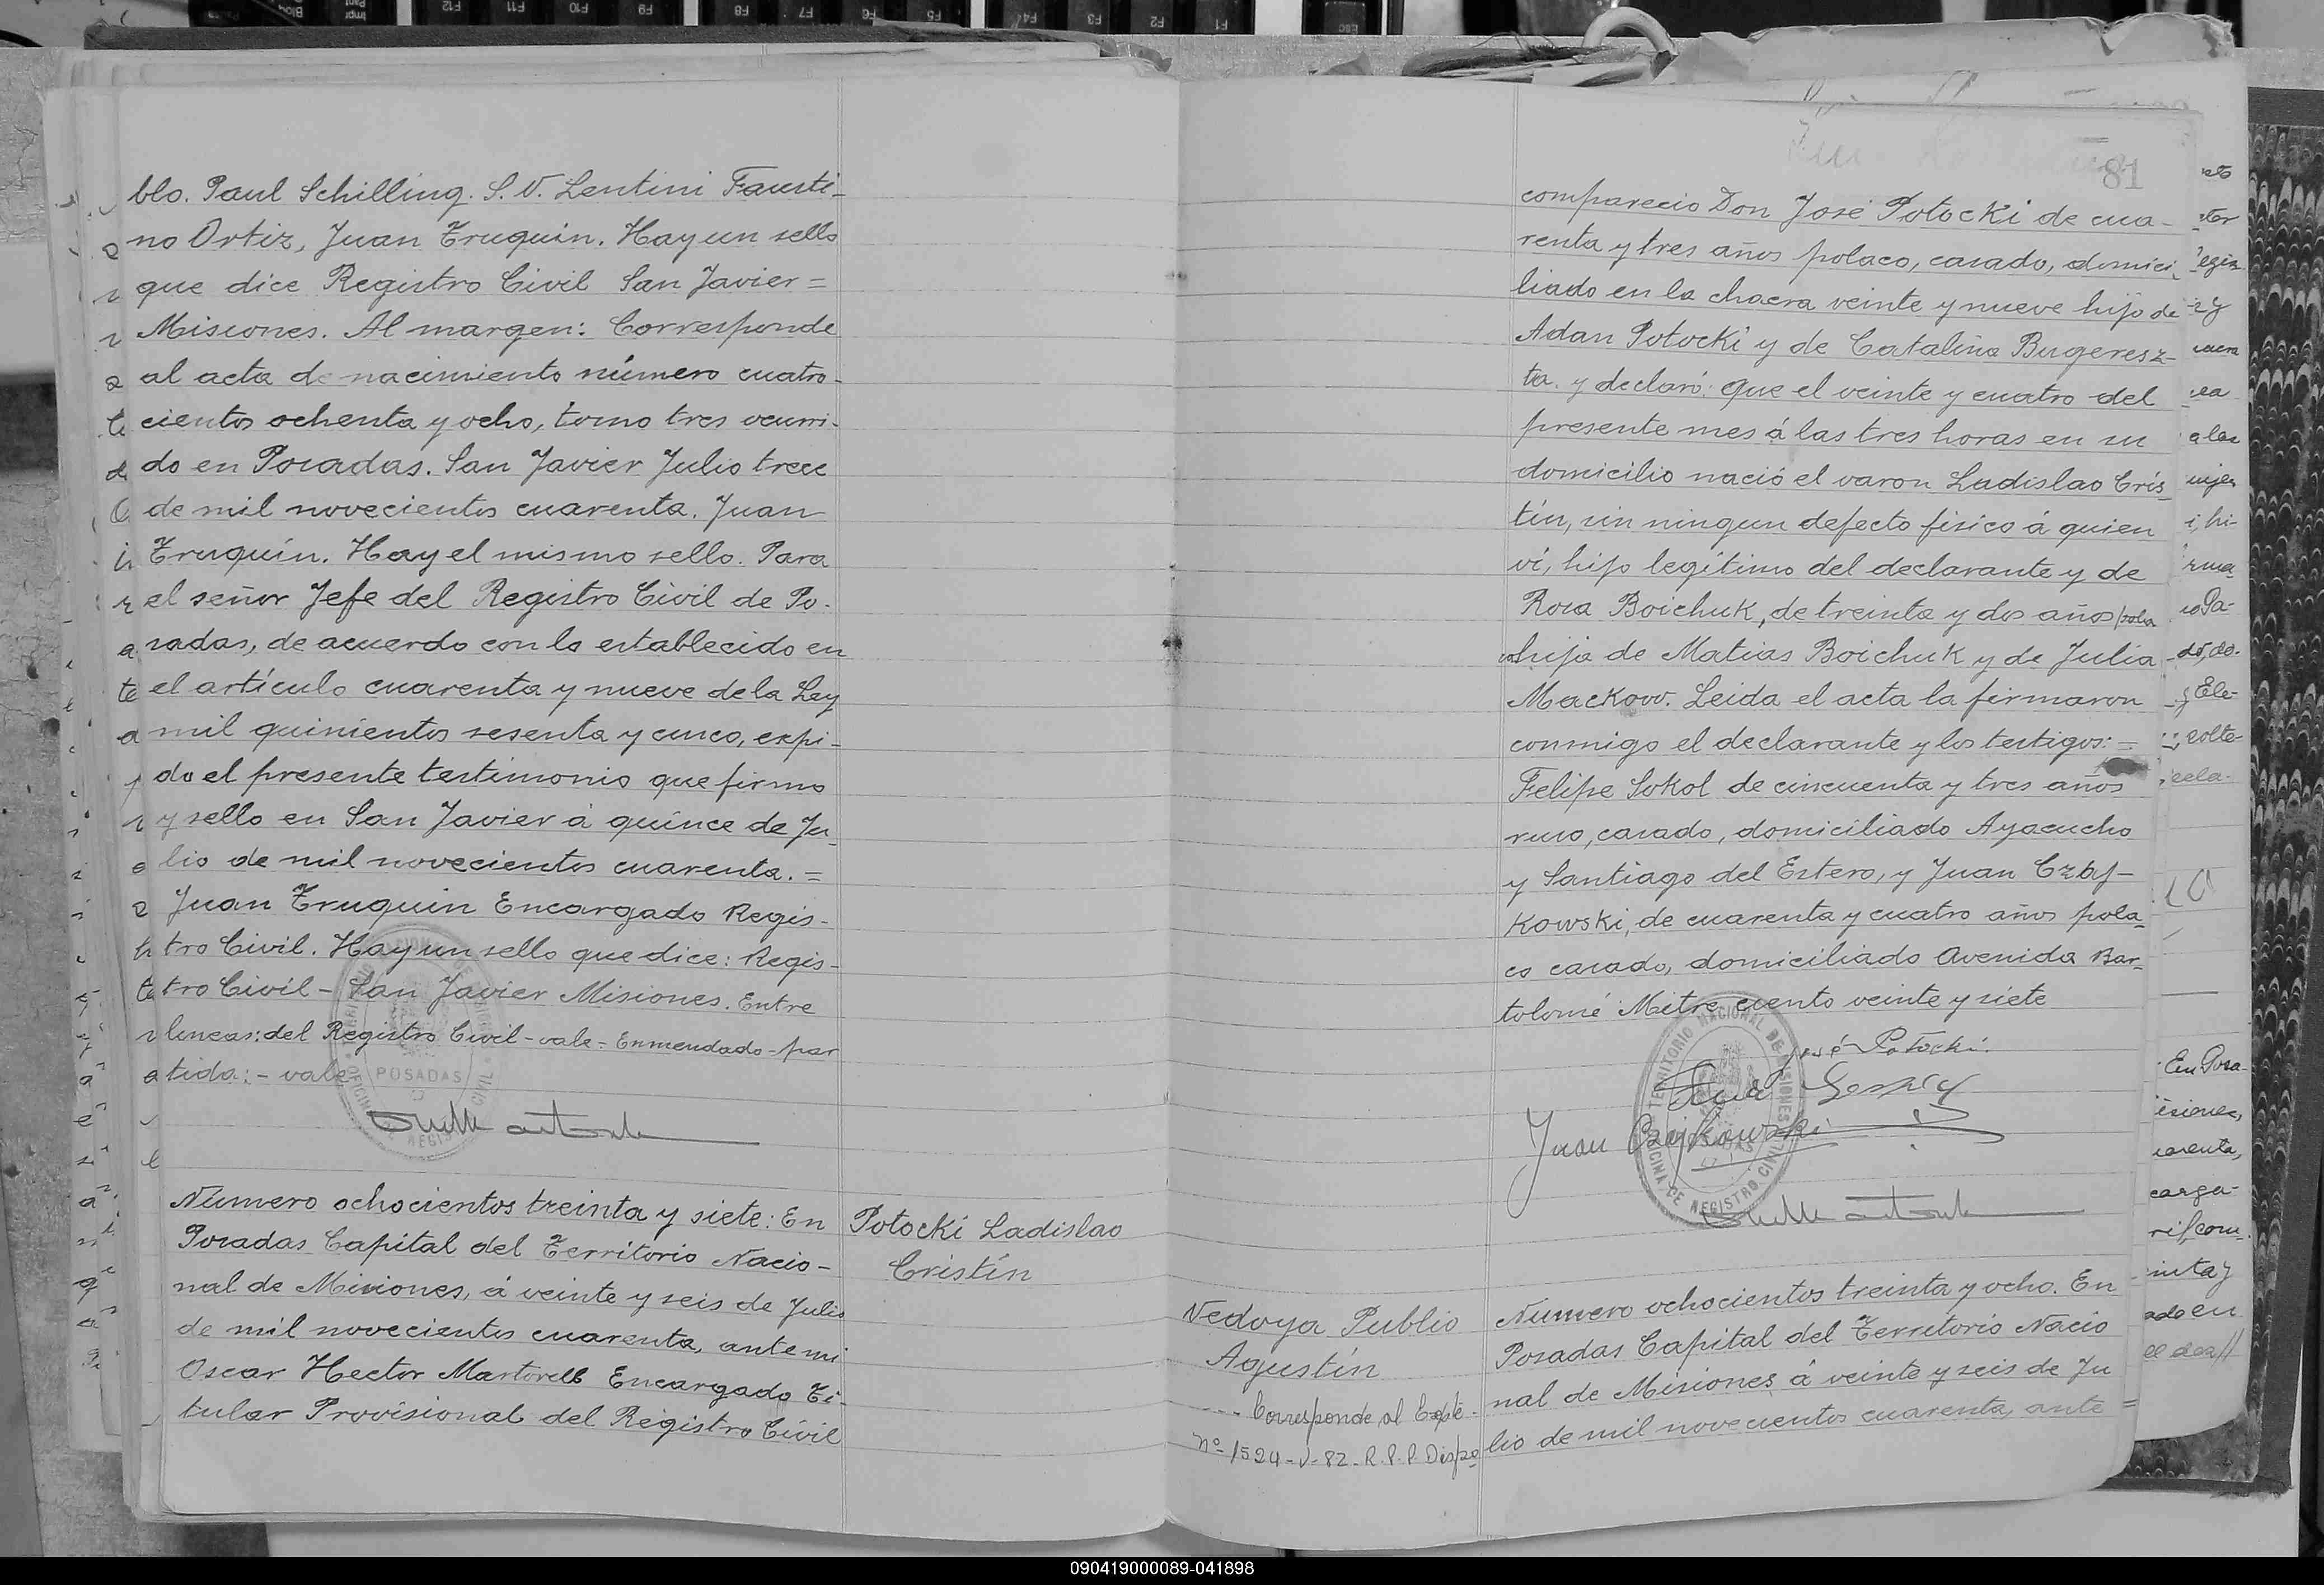 blo. Paul Schilling. S. V. Lentini Fausti-
no Ortiz, Juan Truquin. Hay un sello
que dice Registro Civil San Javier =
Misiones. Al margen: Corresponde
al acta de nacimiento número cuatro-
cientos ochenta y ocho, tomo tres ocurri-
do en Posadas. San Javier Julio trece
de mil novecientos cuarenta. Juan
Truquín. Hay el mismo sello. Para
el señor Jefe del Registro Civil de Po-
sadas, de acuerdo con lo establecido en
el artículo cuarenta y nueve de la Ley
mil quinientos sesenta y cinco, expi-
do el presente testimonio que firmo
y sello en San Javier á quince de Ju-
lio de mil novecientos cuarenta. =
Juan Truquin Encargado Regis-
tro Civil. Hay un sello que dice: Regis-
tro Civil - San Javier Misiones. Entre
lineas: del Registro Civil - vale = Enmendado - par
tida: - vale
POSADAS
Numero ochocientos treinta y siete: En
Posadas Capital del Territorio Nacio-
nal de Misiones, á veinte y seis de Julio
de mil novecientos cuarenta, ante mi
Oscar Hector Martorell Encargado Ti-
tular Provisional del Registro Civil
Potocki Ladislao
Cristín
81
comparecio Don José Potocki de cua-
renta y tres años polaco, casado, domici-
liado en la chacra veinte y nueve hijo de
Adan Potocki y de Catalina Bugeresz-
ta. y declaró: que el veinte y cuatro del
presente mes á las tres horas en su
domicilio nació el varon Ladislao Cris-
tín, sin ningun defecto fisico á quien
ví, hijo legítimo del declarante y de
Rosa Boichuk, de treinta y dos años pola
ca hija de Matias Boichuk y de Julia
Mackow. Leida el acta la firmaron
conmigo el declarante y los testigos: =
Felipe Sokol de cincuenta y tres años
ruso, casado, domiciliado Ayacucho
y Santiago del Estero, y Juan Czay-
kowski, de cuarenta y cuatro años pola-
co casado, domiciliado Avenida Bar-
tolomé Mitre ciento veinte y siete
José Potocki.
Juan Czajkowski
TERRITORIO NACIONAL DE MISIONES
OFICINA DE REGISTRO CIVIL
Nedoya Publio
Agustín
Corresponde al Expte.
Nº 1524-V-82-R.P.P. Dispo
Numero ochocientos treinta y ocho. En
Posadas Capital del Territorio Nacio
nal de Misiones á veinte y seis de Ju
lio de mil novecientos cuarenta, ante =
090419000089-041898